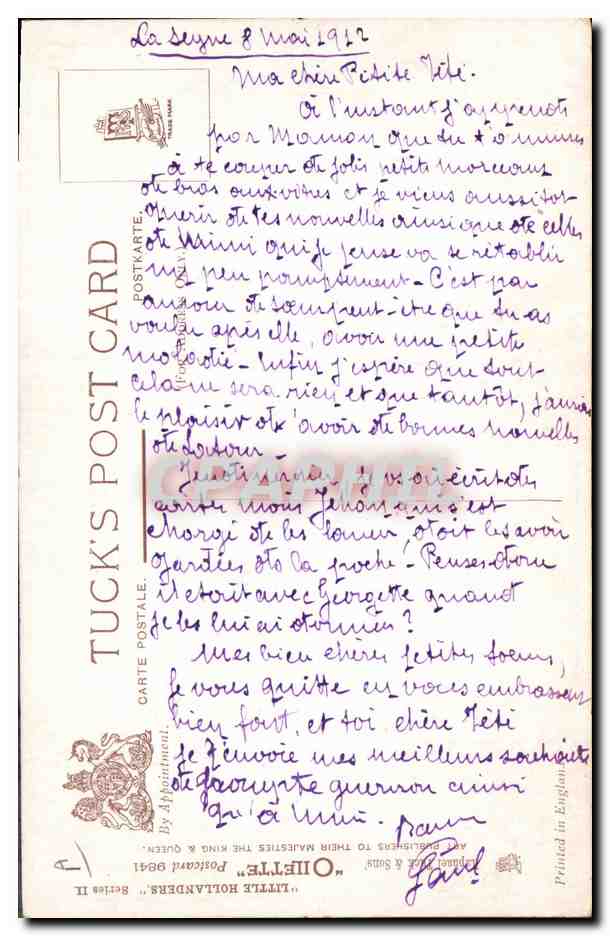 La Seyne 8 mai 1912
Ma chère Petite Tété.
À l'instant j'apprends
par Maman que tu t'amuses
à te couper de jolis petits morceaux
de bras aux vitres et je viens aussitôt
quérir de tes nouvelles ainsi que de celles
de Mimi qui je pense va se rétablir
un peu promptement - C'est par
amour de soeur peut-être que tu as
voulu après elle, avoir une petite
maladie - Enfin j'espère que tout
cela ne sera rien et que tantôt, j'aurai
le plaisir d'avoir de bonnes nouvelles
de
je vous ai écrit des
cartes mais Jehan qui s'est
chargé de les doit les avoir
gardées ds la poche - Penses donc
il était avec Georgette quand
je les lui ai données ?
Mes bien chères petites soeurs,
Je vous quitte en vous embrassant
bien fort, et toi chère Tété
je t'envoie mes meilleurs souhaits
de prompte guérison ainsi
qu'à Mimi.
TUCK'S POST CARD
CARTE POSTALE.
POSTKARTE.
(FOR ADDRESS ONLY.)
TRADE MARK
By Appointment.
"LITTLE HOLLANDERS," Series II.
"OILETTE" Postcard 9841
Raphael Tuck & Sons'
ART PUBLISHERS TO THEIR MAJESTIES THE KING & QUEEN.
Printed in England
CPAPHIL